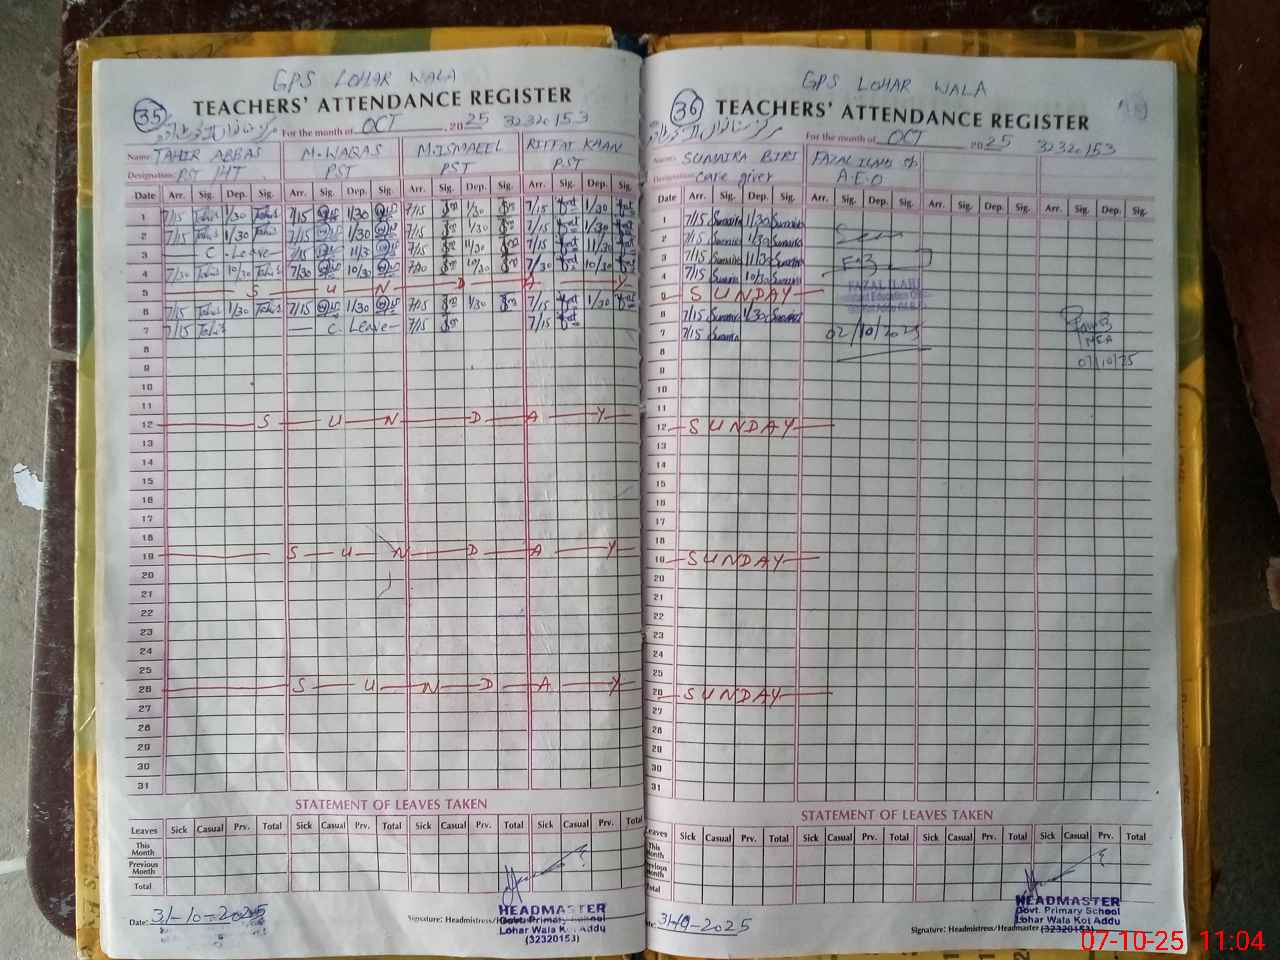 GPS LOHAR WALA
35 TEACHERS' ATTENDANCE REGISTER
For the month of OCT 2025 32320153
Name TAHIR ABBAS M.WAQAS M.ISMAEEL RIFFAT KHAN
Designation PST HT PST PST PST
Date Arr. Sig. Dep. Sig. Arr. Sig. Dep. Sig. Arr. Sig. Dep. Sig. Arr. Sig. Dep. Sig.
1 7/15 Tahir 1/30 Tahir 7/15 1/30 7/15 1/30 7/15 1/30
2 7/15 Tahir 1/30 Tahir 7/15 1/30 7/15 1/30 7/15 1/30
3 C. Leave 7/15 11/30 7/15 11/30 7/15 11/30
4 7/30 Tahir 10/30 Tahir 7/30 10/30 7/30 10/30 7/30 10/30
5 S U N D A Y
6 7/15 Tahir 1/30 Tahir 7/15 1/30 7/15 1/30 7/15 1/30
7 7/15 Tahir C. Leave 7/15 7/15
8
9
10
11
12 S U N D A Y
13
14
15
16
17
18
19 S U N D A Y
20
21
22
23
24
25
26 S U N D A Y
27
28
29
30
31
STATEMENT OF LEAVES TAKEN
Leaves Sick Casual Prv. Total Sick Casual Prv. Total Sick Casual Prv. Total Sick Casual Prv. Total
This Month
Previous Month
Total
Date: 31-10-2025
Signature: Headmistress/
HEADMASTER
Govt. Primary School
Lohar Wala Kot Addu
(32320153)
GPS LOHAR WALA
36 TEACHERS' ATTENDANCE REGISTER
For the month of OCT 2025 32320153
Name: SUMAIRA BIBI FAZAL ILAHI
Designation: Care giver A.E.O
Date Arr. Sig. Dep. Sig. Arr. Sig. Dep. Sig. Arr. Sig. Dep. Sig. Arr. Sig. Dep. Sig.
1 7/15 Sumaira 1/30 Sumaira
2 7/15 Sumaira 1/30 Sumaira
3 7/15 Sumaira 11/30 Sumaira
4 7/15 Sumaira 10/30 Sumaira
5 SUNDAY
FAZAL ILAHI
6 7/15 Sumaira 1/30 Sumaira
7 7/15 Sumaira 02/10/2025
MEA
8
07/10/25
9
10
11
12 SUNDAY
13
14
15
16
17
18
19 SUNDAY
20
21
22
23
24
25
26 SUNDAY
27
28
29
30
31
STATEMENT OF LEAVES TAKEN
Leaves Sick Casual Prv. Total Sick Casual Prv. Total Sick Casual Prv. Total Sick Casual Prv. Total
This Month
Previous Month
Total
Date: 31-10-2025
Signature: Headmistress/Headmaster
HEADMASTER
Govt. Primary School
Lohar Wala Kot Addu
(32320153)
07-10-25 11:04